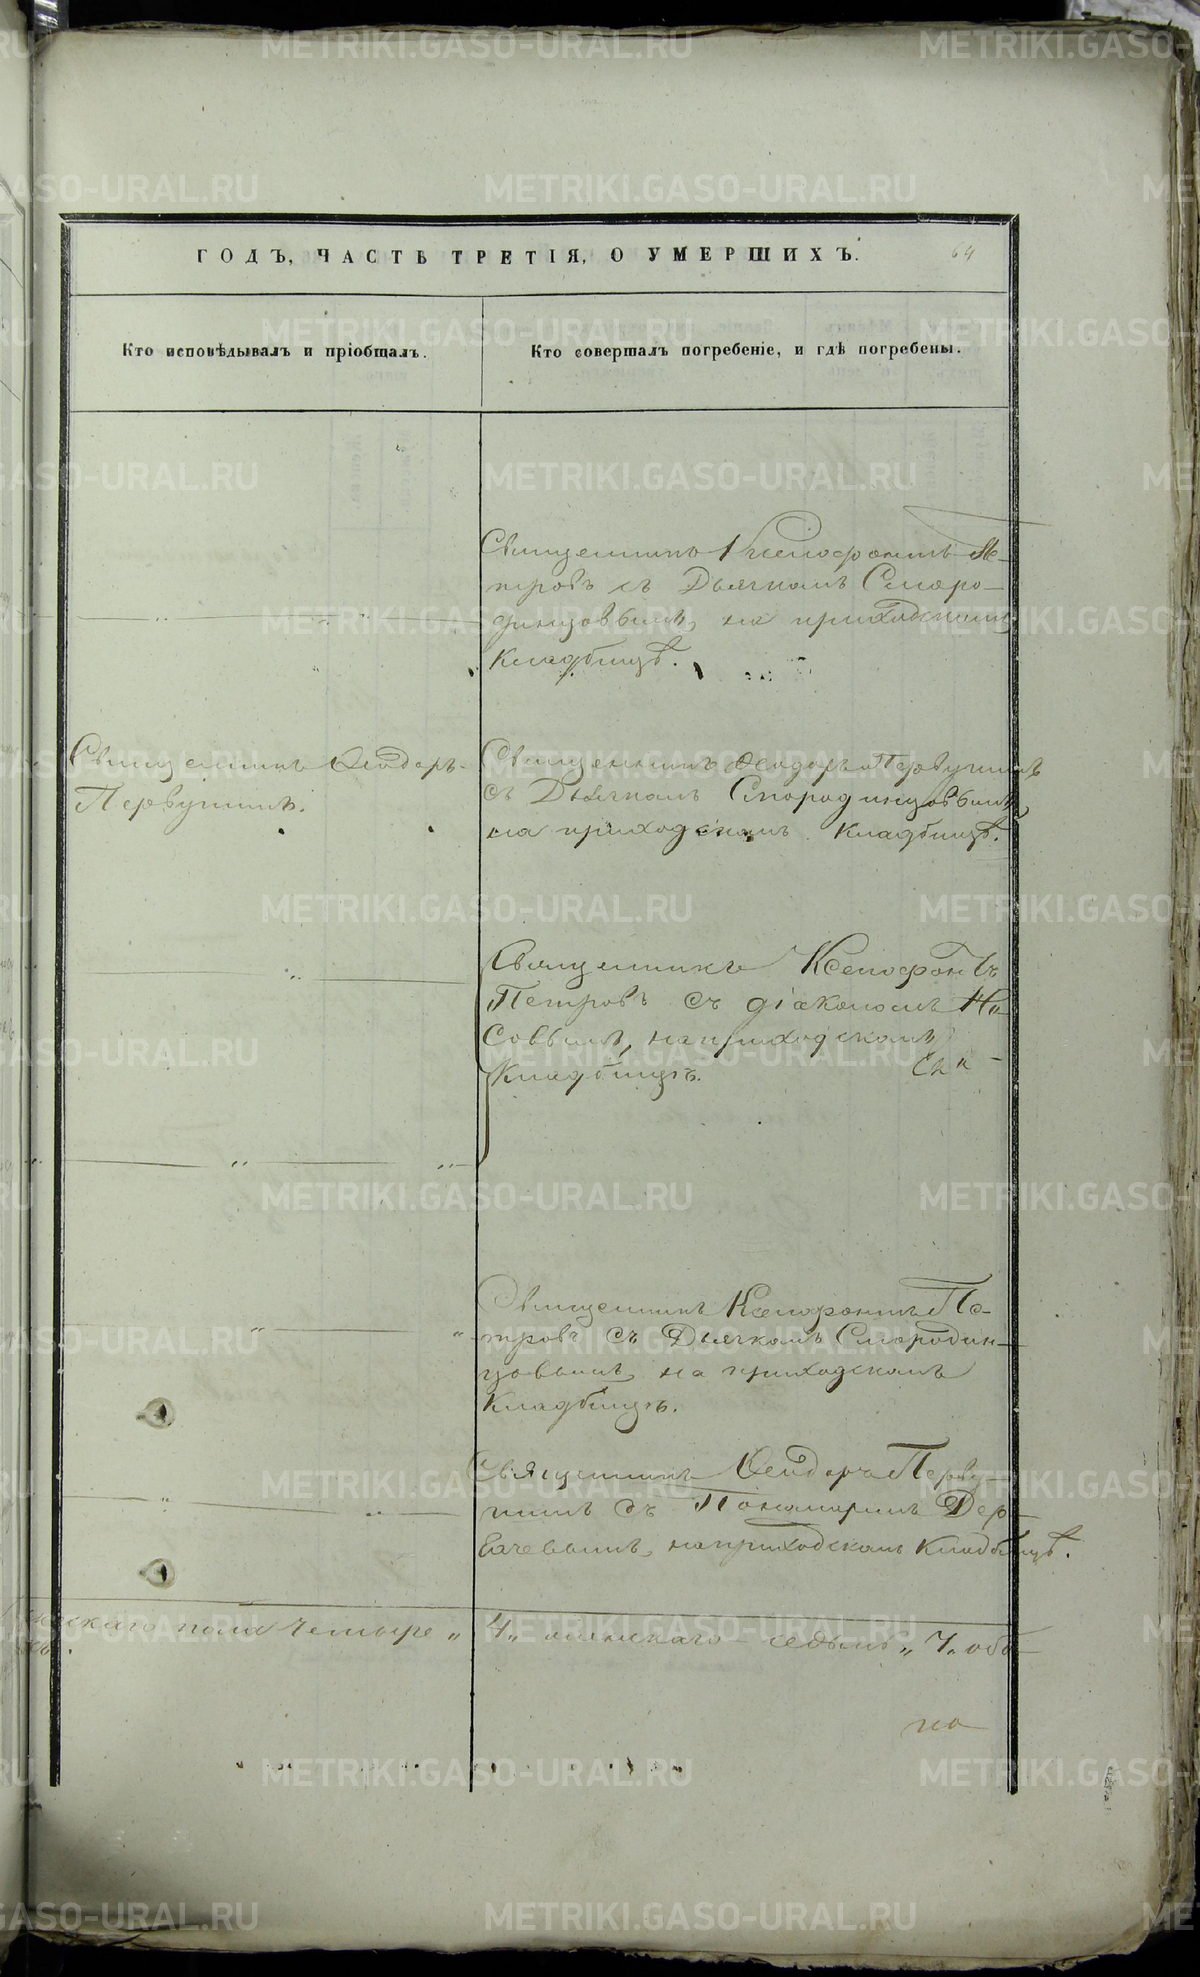 ГОДЪ, ЧАСТЬ ТРЕТІЯ, О УМЕРШИХЪ.
64
Кто исповѣдывалъ и пріобщалъ.
Кто совершалъ погребеніе, и гдѣ погребены.
Священникъ Ксенофонтъ Пе-
тровъ съ Дьячкомъ Смаро-
динцовымъ, на приходскомъ
Кладбищѣ.
Священникъ Ѳеодоръ
Первушинъ.
Священникъ Ѳеодоръ Первушинъ
съ Дьячкомъ Смородинцовымъ,
на приходскомъ Кладбищѣ.
Священникъ Ксенофонтъ
Петровъ съ діакономъ Но-
совымъ, на приходскомъ
Кладбищѣ.
Священникъ Ксенофонтъ Пе-
тровъ съ Дьячкомъ Смородин-
цовымъ на приходскомъ
Кладбищѣ.
Священникъ Ѳеодоръ Перву-
шинъ съ Пономаремъ Дер-
на приходскомъ Кладбищѣ.
пола четыре „ 4 „ женскаго седмь „ 7 „ обо-
METRIKI.GASO-URAL.RU